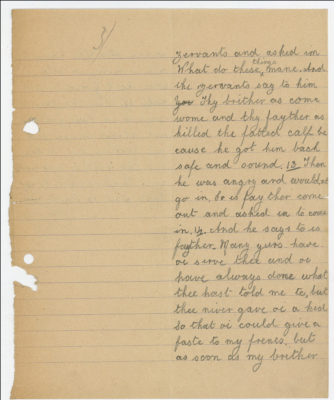 3/
zervants and asked im
What do these things mane. And
the zervants say to him
You Thy brither as come
wome and thy fayther as
killed the fatted calf be
cause he got him back
safe and sound. 13 Then
he was angry and would,nt
go in. So is fay ther come
out and asked in to come
in. 14. And he says to is
fayther. Many yurs have
oi serve thee and oi
have always done what
thee hast told me to, but
thee niver gave oi a kid
so that oi could give a
faste to my frens, but
as soon as my brither